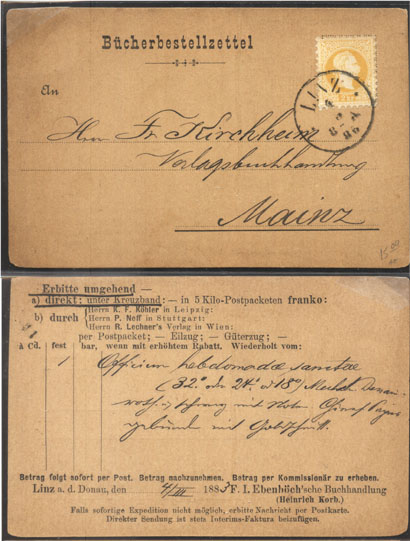 Bücherbestellzettel
An
LINZ
Herrn Fr. Kirchheim
Verlagsbuchhandlung
Mainz
15.00
Erbitte umgehend —
a) direkt; unter Kreuzband: — in 5 Kilo-Postpacketen franko:
b) durch
Herrn K. F. Köhler in Leipzig:
Herrn P. Neff in Stuttgart:
Herrn R. Lechner's Verlag in Wien:
per Postpacket; — Eilzug; — Güterzug; —
à Cd. fest bar, wenn mit erhöhtem Rabatt. Wiederholt vom:
1 Officium hebdomadae sanctae
(32° 24° 18°)
roth u schwarz mit Noten
gebunden mit Goldschnitt.
Betrag folgt sofort per Post. Betrag nachzunehmen. Betrag per Kommissionär zu erheben.
Linz a. d. Donau, den 4/III 1883 F. I. Ebenhöch'sche Buchhandlung
(Heinrich Korb.)
Falls sofortige Expedition nicht möglich, erbitte Nachricht per Postkarte.
Direkter Sendung ist stets Interims-Faktura beizufügen.